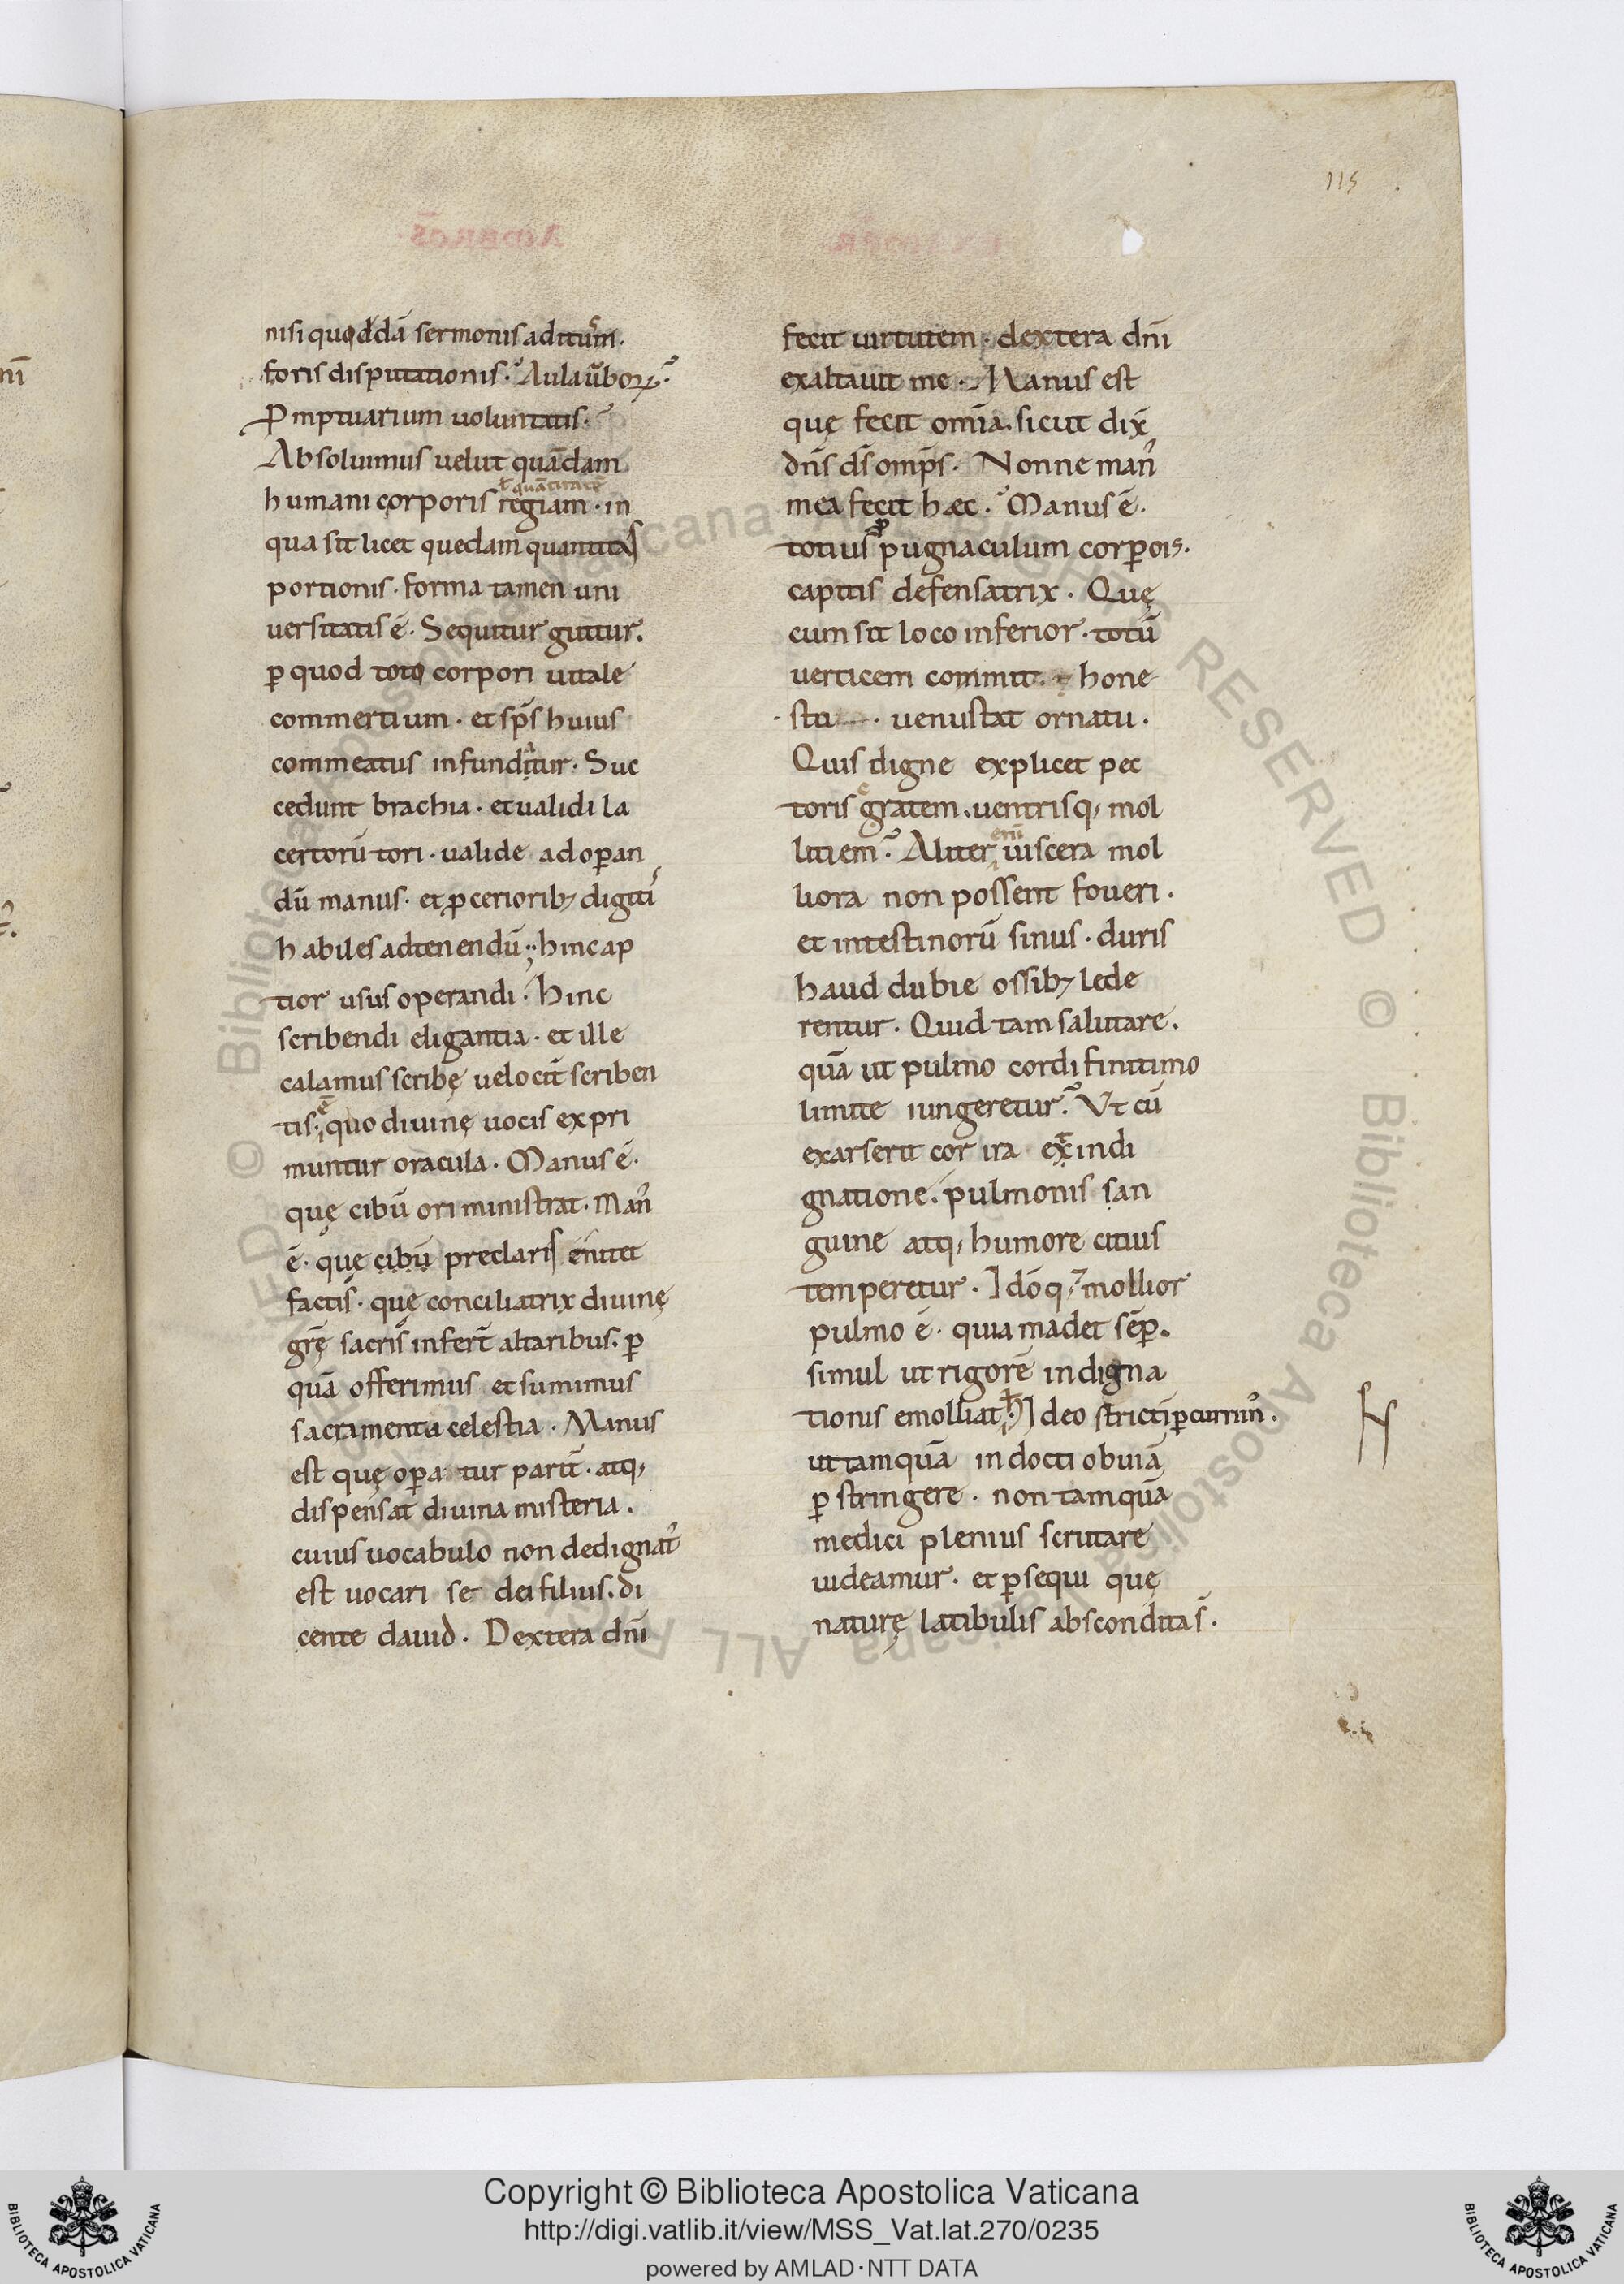 115
nisi quoddā sermonis aditum.
foris disputationis. Aula ūborꝝ.
Ꝓmptuarium uoluntatis.
Absoluimus uelut quādam
ł quātitatē
humani corporis regiam. in
qua sit licet quedam quantitas
portionis. forma tamen uni
uersitatis ē. Sequitur guttur.
ꝑ quod toto corpori uitale
commertium. et sp̄s huius
commeatus infunditur. Suc
cedunt brachia. et ualidi la
certorū tori. ualide ad oꝑan
dū manus. et ꝓceriorib; digiti
habiles ad tenendū; hinc ap
tior usus operandi. hinc
scribendi eligantia. et ille
calamus scribę uelocit̄ scriben
tis; quo diuinę uocis expri
muntur oracula. Manus ē.
quę cibū ori ministrat. Man᾽
ē. quę cibū preclaris enitet
factis. quę conciliatrix diuinę
gr̄ę sacris infert̄ altaribus. ꝑ
quā offerimus et sumimus
sacramenta celestia. Manus
est quę oꝑatur parit̄. atq;
dispensat diuina misteria.
cuius uocabulo non dedignat᾽
est uocari se dei filius. di
cente dauid. Dextera dn̄i
fecit uirtutem. dextera dn̄i
exaltauit me. Manus est
quę fecit om̄ia. sicut dix̄
dn̄s ds̄ omp̄s. Nonne man᾽
mea fecit hæc. Manus ē.
totius pugnaculum corꝑois.
capitis defensatrix. Quę
cum sit loco inferior. totū
uerticem commit. hone
sto. uenustat ornatu.
Quis digne explicet pec
toris gratem. uentrisq; mol
enī
litiem. Aliter uiscera mol
liora non possent foueri.
et intestinorū sinus. duris
haud dubie ossib; lede
rentur. Quid tam salutare.
quā ut pulmo cordi finitimo
limite iungeretur. Vt cū
exarserit cor ira ex indi
gnatione. pulmonis san
guine atq; humore citius
temperetur. Idōq; mollior
pulmo ē. quia madet sēꝑ.
simul ut rigorē indigna
tionis emolliat. Ideo strictī ꝑcurrim᾽.
ut tamquā indocti obuiā
ꝑstringere. non tamquā
medici plenius scrutare
uideamur. et ꝑsequi quę
naturę latibulis abscondita s̄.
Copyright © Biblioteca Apostolica Vaticana
http://digi.vatlib.it/view/MSS_Vat.lat.270/0235
powered by AMLAD·NTT DATA